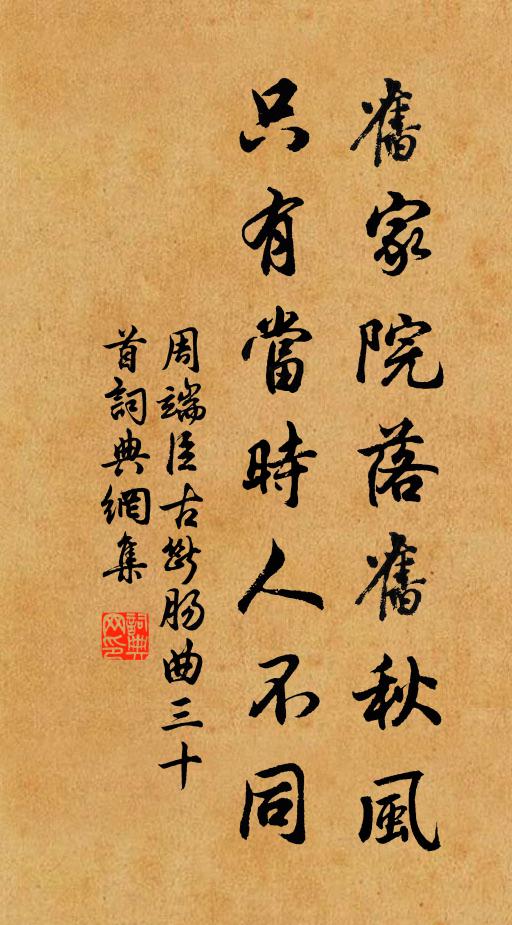 舊家院落舊秋風
只有當時人不同
周端臣古斷肠曲三十
首詞典網集
詞典
网印